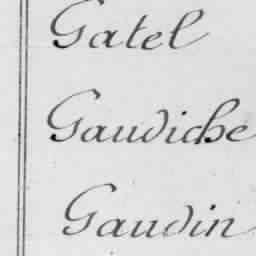 Gatel
Gaudiche
Gaudin